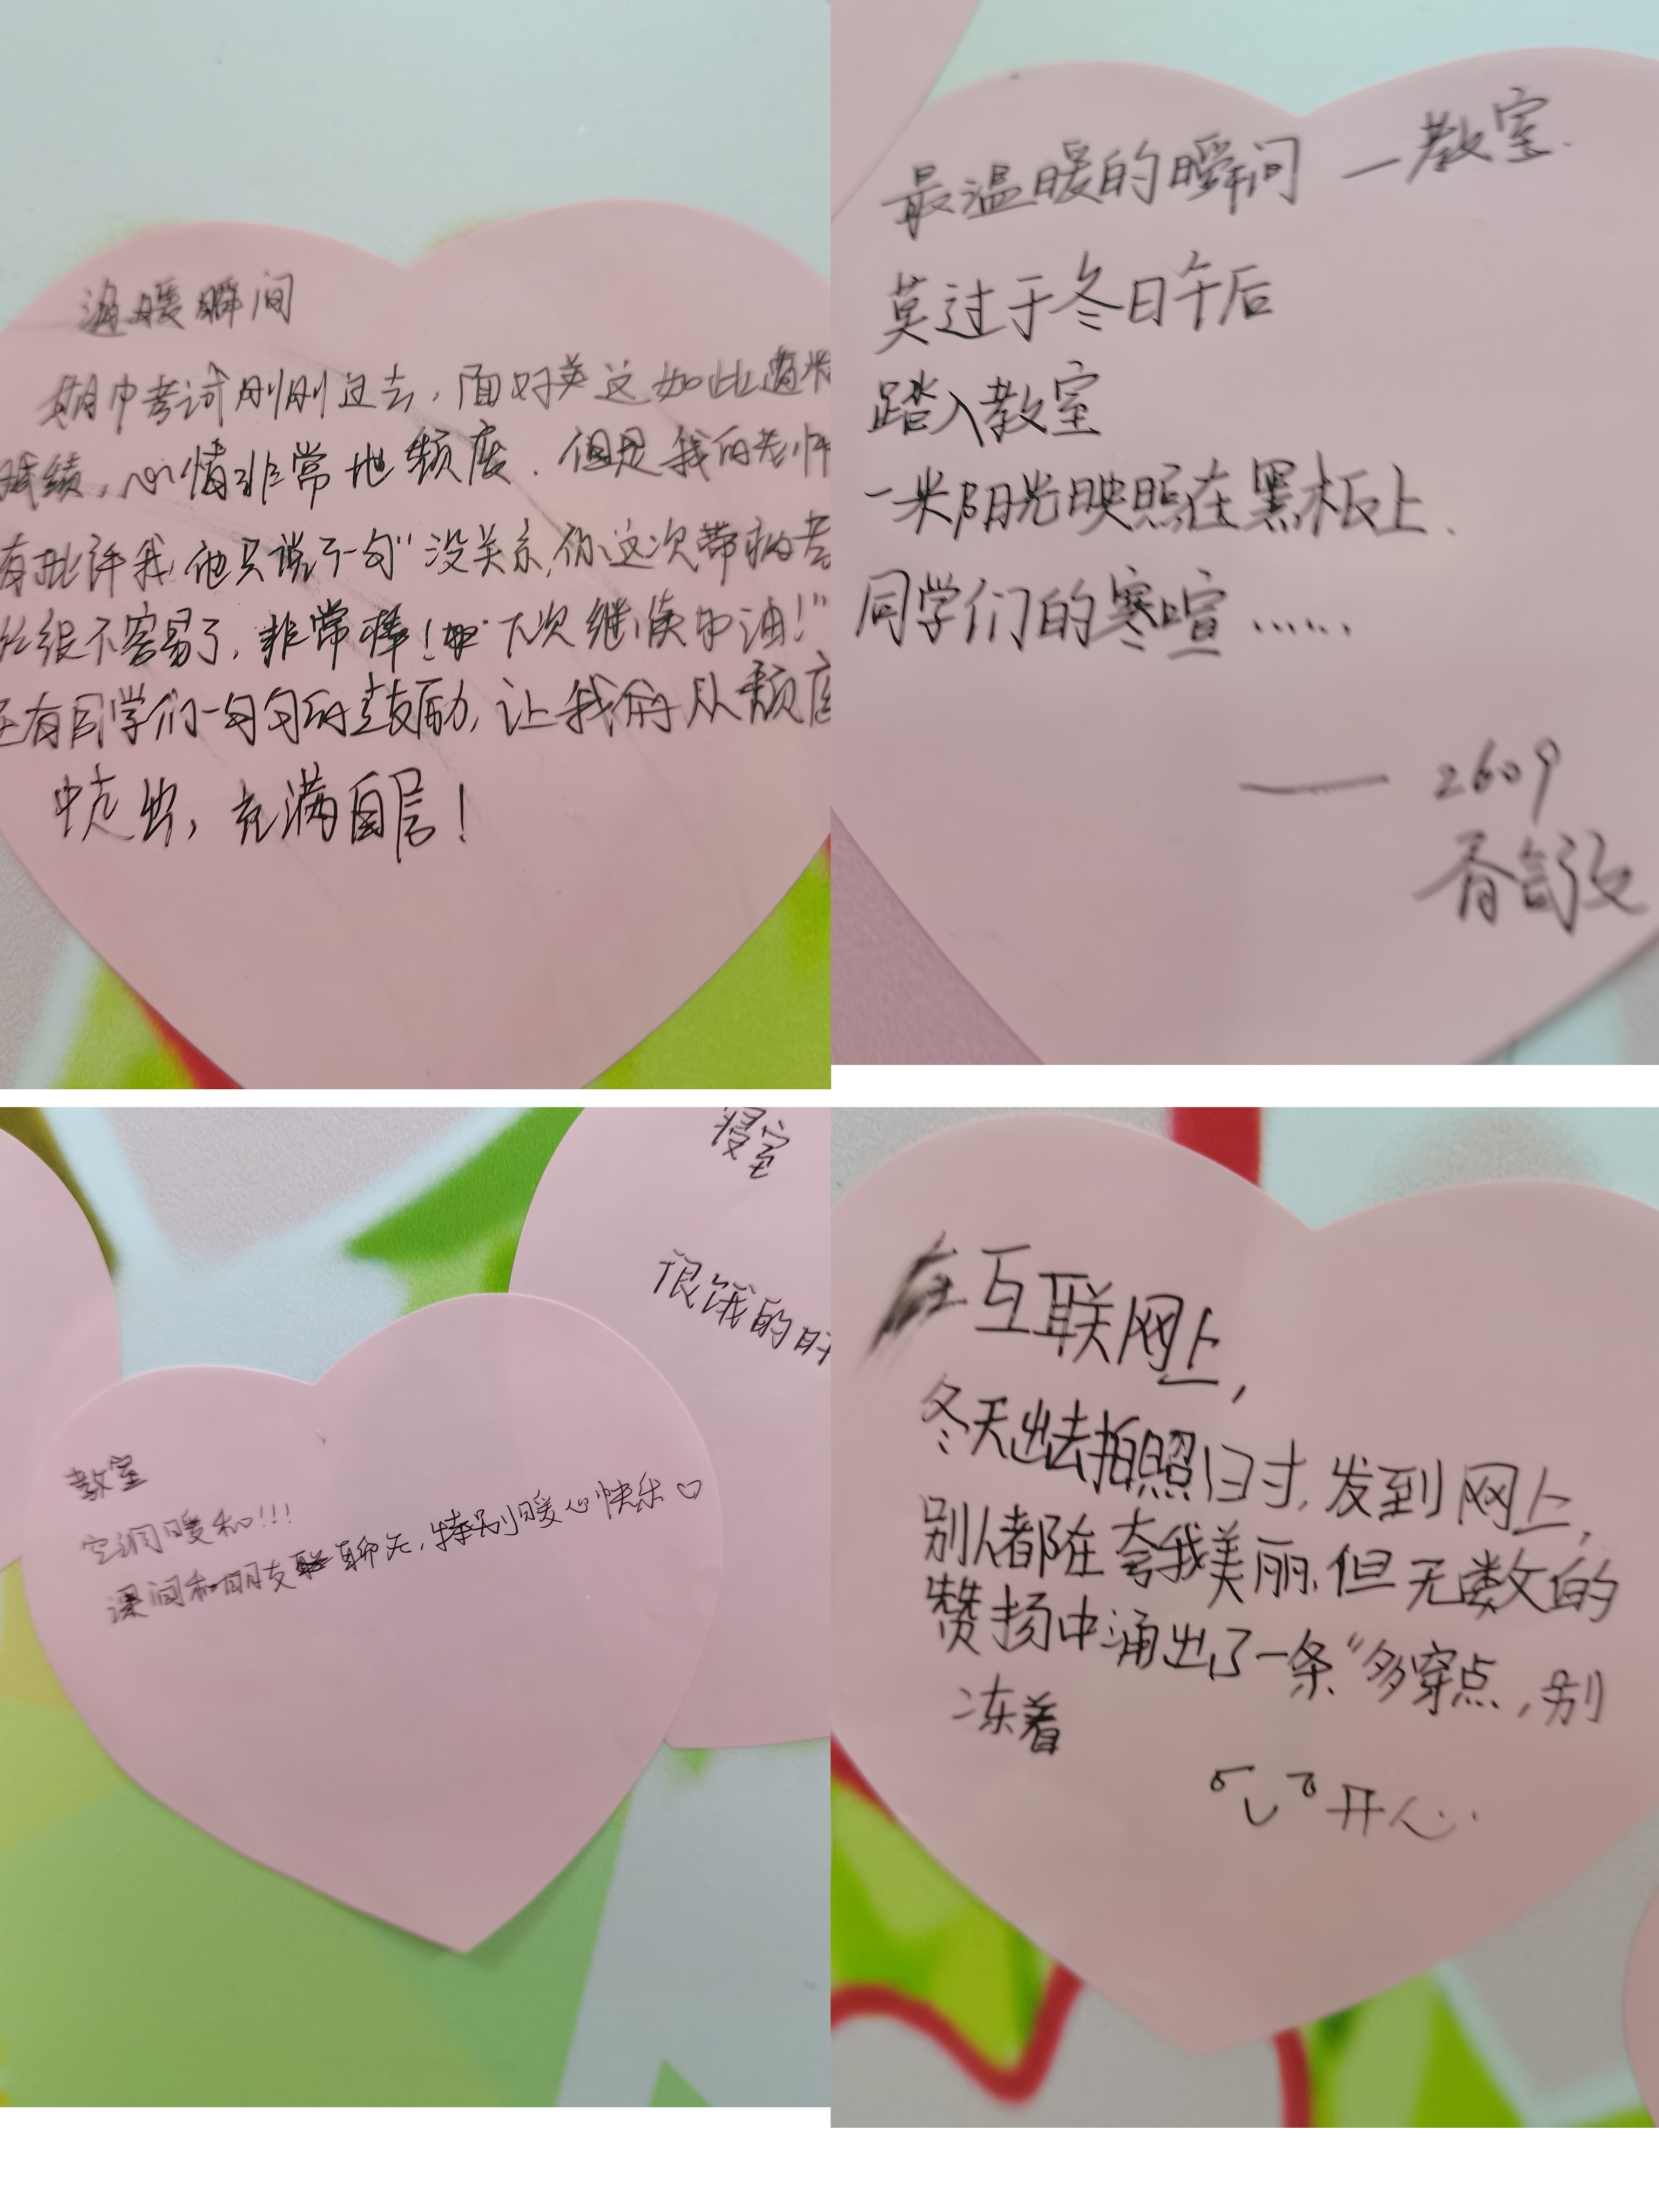 温暖瞬间
期中考试刚刚过去，面对着这如此遭糕
成绩，心情非常地颓废．但是我的老师
有批评我，他只说了一句“没关系，你这次带病考
已经很不容易了，非常棒！下次继续加油！”
还有同学们一句句的鼓励，让我们从颓废
中走出，充满自信！
最温暖的瞬间 —教室．
莫过于冬日午后
踏入教室
一米阳光映照在黑板上．
同学们的寒喧……
—— 2609
寝室
很饿的时
教室
空调暖和!!!
课间和朋友聊天，特别暖心快乐♡
在互联网上，
冬天出去拍照归时，发到网上，
别人都在夸我美丽，但无数的
赞扬中涌出了一条“多穿点，别
冻着
开心